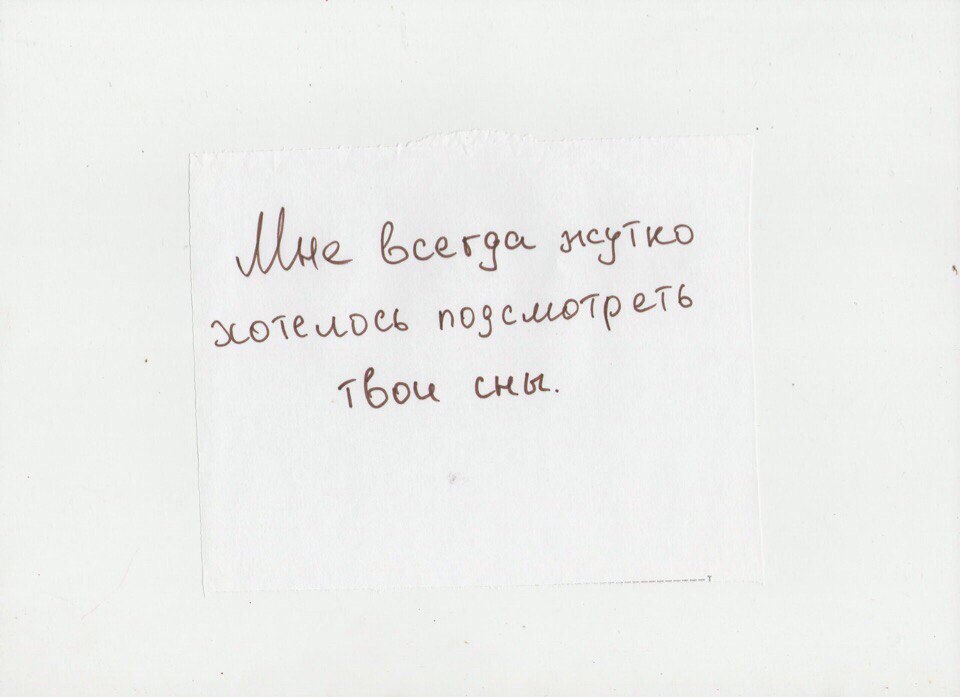 Мне всегда жутко
хотелось подсмотреть
твои сны.